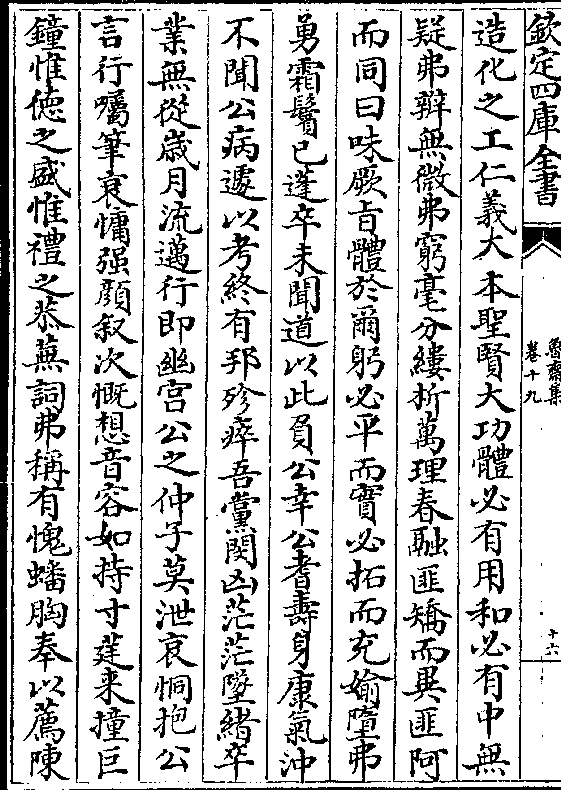 欽定四庫全書
魯齋集
卷十九
十六
造化之工仁義大本聖賢大功體必有用和必有中無
疑弗辯無微弗窮毫分縷析萬理春融匪矯而異匪阿
而同曰味厥旨體於爾躬必平而實必拓而充媮墮弗
勇霜鬢已蓬卒未聞道以此負公幸公耆壽身康氣沖
不聞公病遽以考終有邦殄瘁吾黨閔凶茫茫墜緒卒
業無從歲月流邁行即幽宫公之仲子莫泄哀恫抱公
言行囑筆衰慵强顔叙次慨想音容如持寸莛来撞巨
鐘惟德之盛惟禮之恭蕪詞弗稱有愧蟠胸奉以薦陳